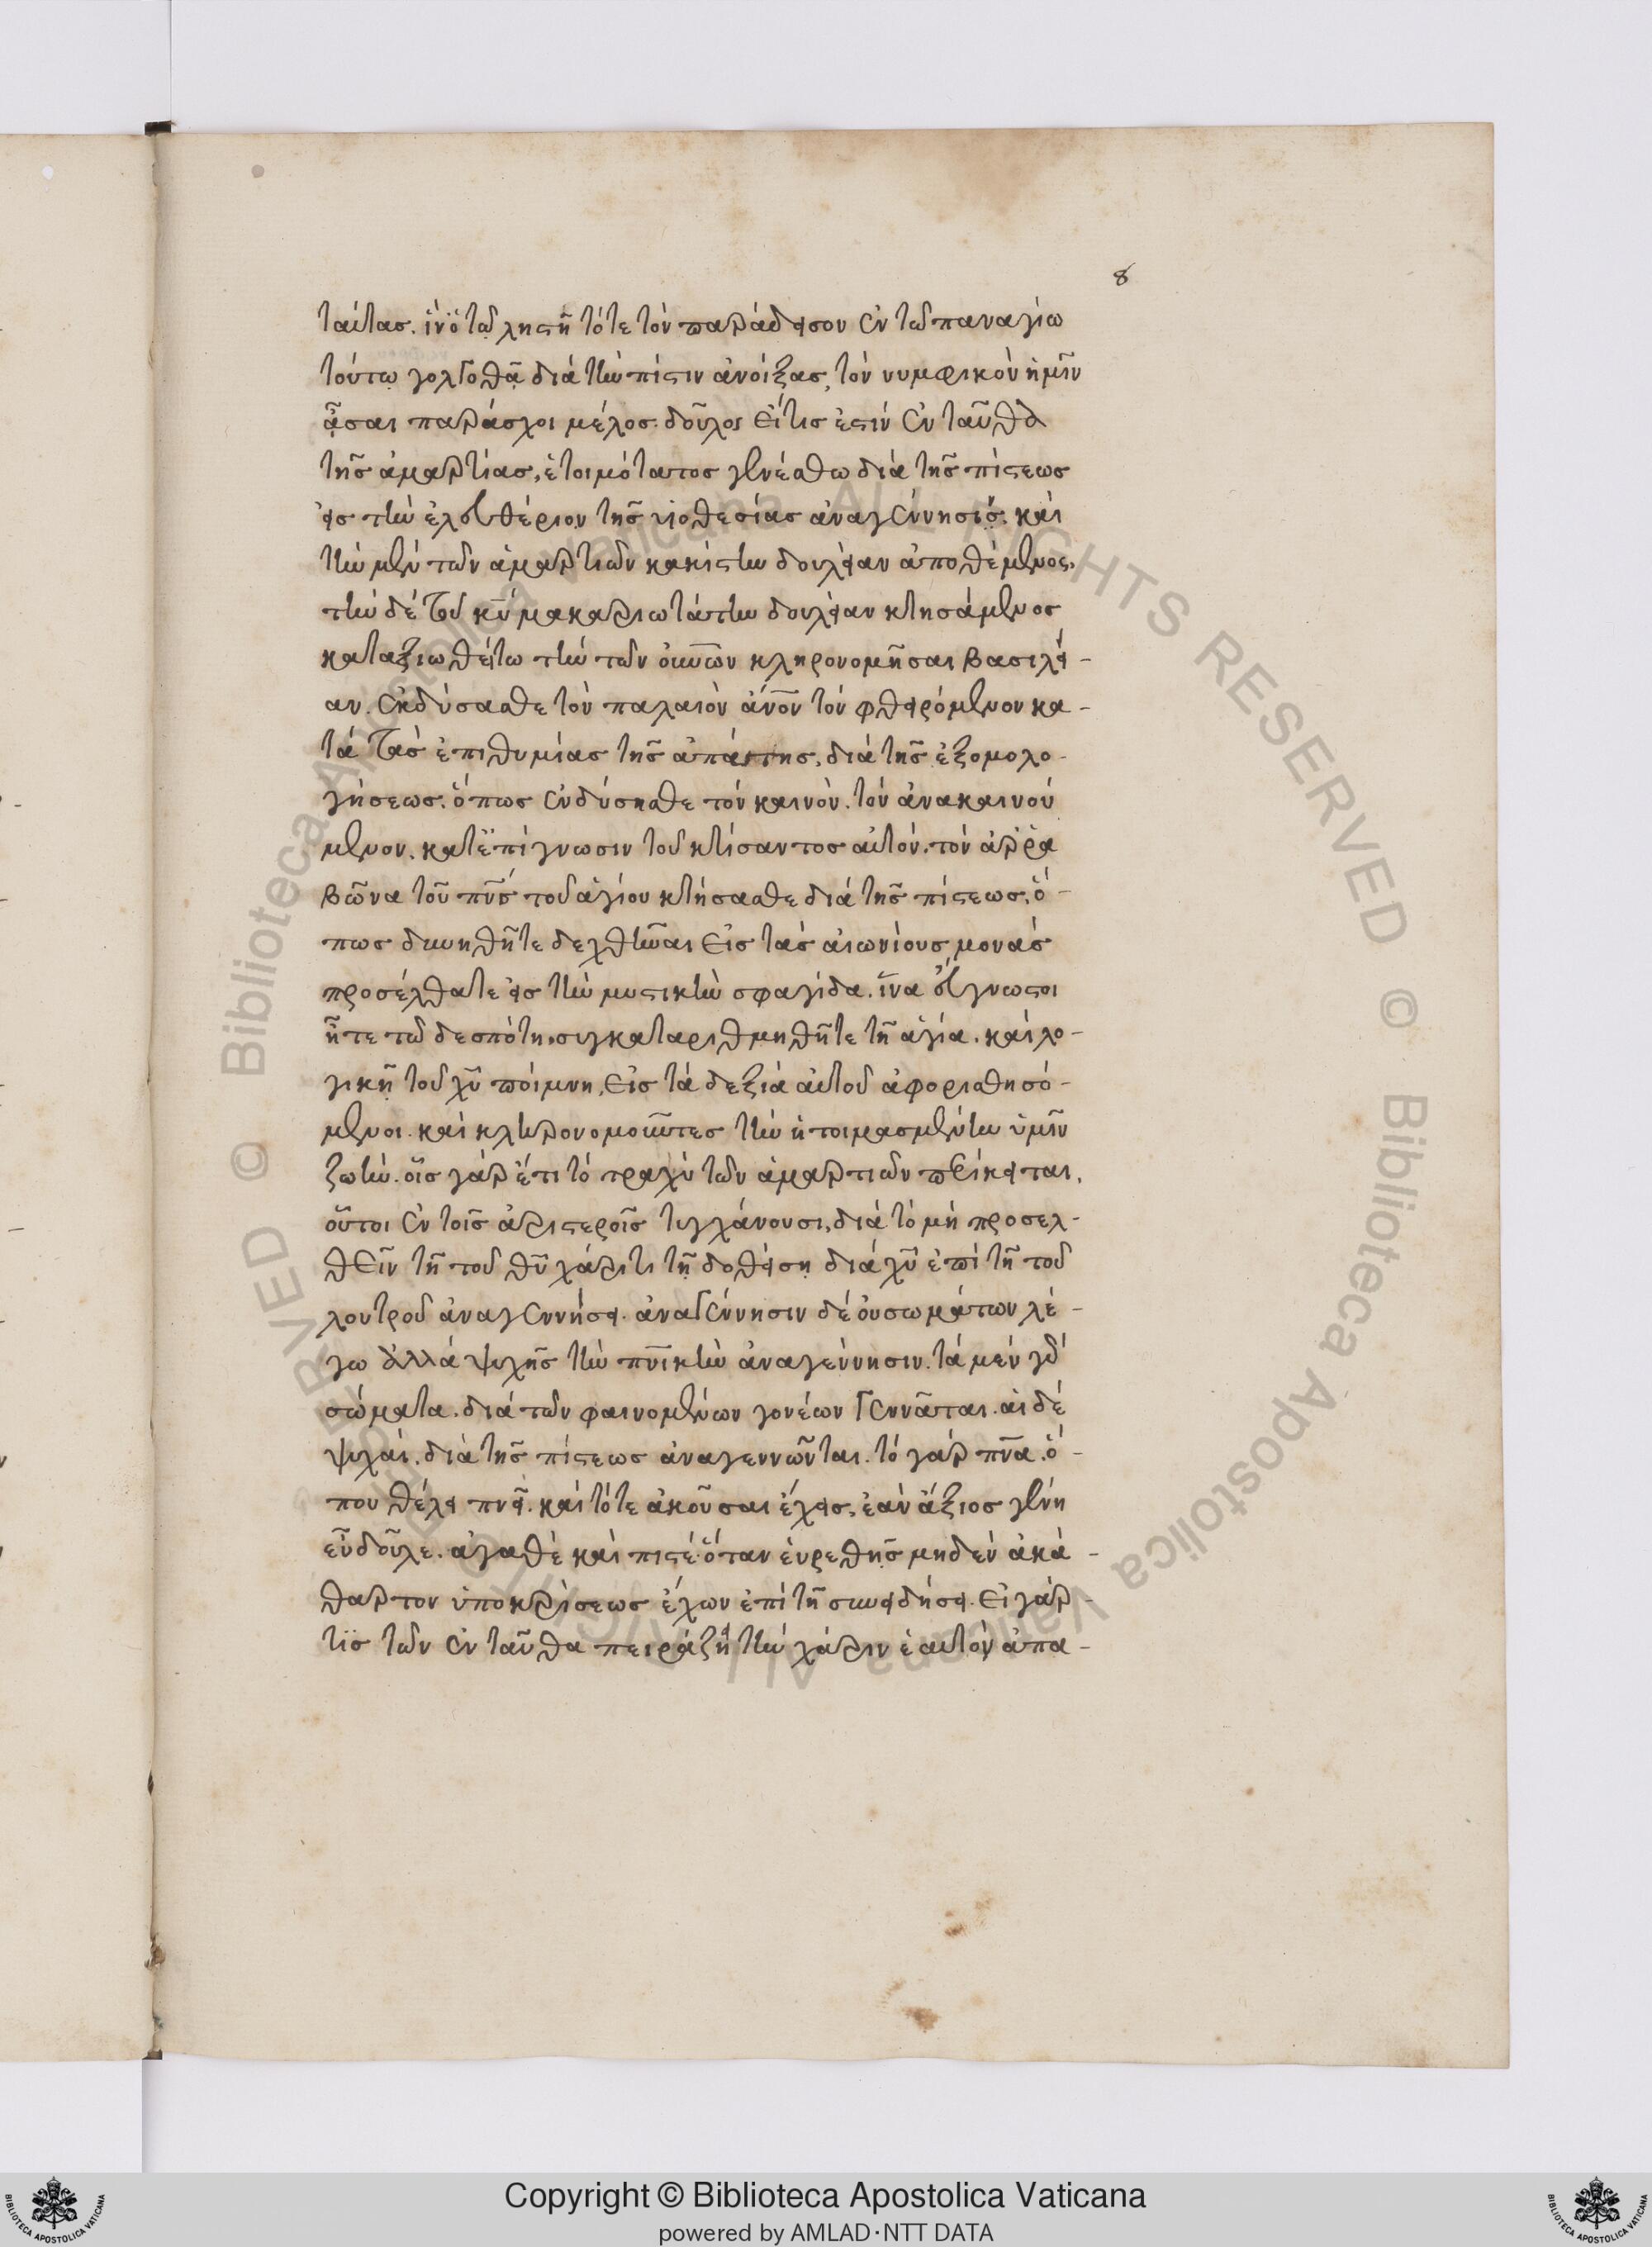 8
ταύτας. ἵν' ὁ τῷ λῃστῇ τότε τὸν παράδεισον ἐν τῷ παναγίῳ
τούτῳ γολγοθᾷ διὰ τὴν πίστιν ἀνοίξας, τὸν νυμφικὸν ἡμῖν
ᾆσαι παράσχοι μέλος. δοῦλος εἴ τις ἐστὶν ἐνταῦθα
τῆς ἁμαρτίας, ἑτοιμότατος γενέσθω διὰ τῆς πίστεως
εἰς τὴν ἐλευθέριον τῆς υἱοθεσίας ἀναγέννησιν. καὶ
τὴν μὲν τῶν ἁμαρτιῶν κακίστην δουλείαν ἀποθέμενος,
τὴν δὲ τοῦ κυ μακαριωτάτην δουλείαν κτησάμενος
καταξιωθείτω τὴν τῶν οὐνῶν κληρονομῆσαι βασιλεί-
αν. ἐκδύσασθε τὸν παλαιὸν ἄνον τὸν φθειρόμενον κα-
τὰ τὰς ἐπιθυμίας τῆς ἀπάτης, διὰ τῆς ἐξομολο-
γήσεως. ὅπως ἐνδύσησθε τὸν καινὸν. τὸν ἀνακαινού
μενον. κατ' ἐπίγνωσιν τοῦ κτίσαντος αὐτόν. τὸν ἀρρα
βῶνα τοῦ πνς τοῦ ἁγίου κτήσασθε διὰ τῆς πίστεως, ὅ-
πως δυνηθῆτε δεχθῆναι εἰς τὰς αἰωνίους μονάς
προσέλθατε εἰς τὴν μυστικὴν σφαγίδα. ἵνα εὔγνωστοι
ἦτε τῷ δεσπότῃ. συγκαταριθμηθῆτε τῇ ἁγίᾳ. καὶ λο-
γικῇ τοῦ χυ ποίμνῃ, εἰς τὰ δεξιὰ αὐτοῦ ἀφορισθησό-
μενοι. καὶ κληρονομοῦντες τὴν ἡτοιμασμένην ὑμῖν
ζωήν. οἷς γὰρ ἔτι τὸ τραχὺ τῶν ἁμαρτιῶν πρόσκειται,
οὗτοι ἐν τοῖς ἀριστεροῖς τυγχάνουσι, διὰ τὸ μὴ προσελ-
θεῖν τῇ τοῦ θυ χάριτι τῇ δοθείσῃ διὰ χυ ἐπὶ τῇ τοῦ
λουτροῦ ἀναγεννήσει. ἀναγέννησιν δὲ οὐ σωμάτων λέ-
γω ἀλλὰ ψυχῆς τὴν πνικὴν ἀναγέννησιν. τὰ μὲν γὰρ
σώματα. διὰ τῶν φαινομένων γονέων γεννᾶται. αἱ δὲ
ψυχαὶ. διὰ τῆς πίστεως ἀναγεννῶνται. τὸ γὰρ πνα. ὅ-
που θέλει πνεῖ. καὶ τότε ἀκοῦσαι ἔχεις, ἐὰν ἄξιος γένῃ
εὖ δοῦλε. ἀγαθὲ καὶ πιστέ. ὅταν εὑρεθῇς μηδὲν ἀκά-
θαρτον ὑποκρίσεως ἔχων ἐπὶ τῇ συνειδήσει. εἰ γὰρ
τις τῶν ἐνταῦθα πειράζῃ τὴν χάριν ἑαυτὸν ἀπα-
Copyright © Biblioteca Apostolica Vaticana
powered by AMLAD·NTT DATA